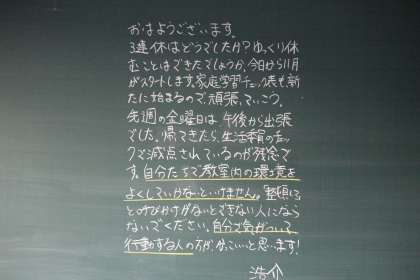 おはようございます。
3連休はどうでしたか？ゆっくり休
むことはできたでしょうか、今日から11月
がスタートします。家庭学習チェック表も新
たに始まるので、頑張っていこう。
先週の金曜日は午後から出張
でした。帰ってきたら、生活委員のチェッ
クで減点されているのが残念で
す。自分たちで教室内の環境を
よくしていかないといけません。「整頓して」
と呼びかけがないとできない人になら
ないでください。自分で気がついて
行動する人の方が、かっこいいと思います！
浩介